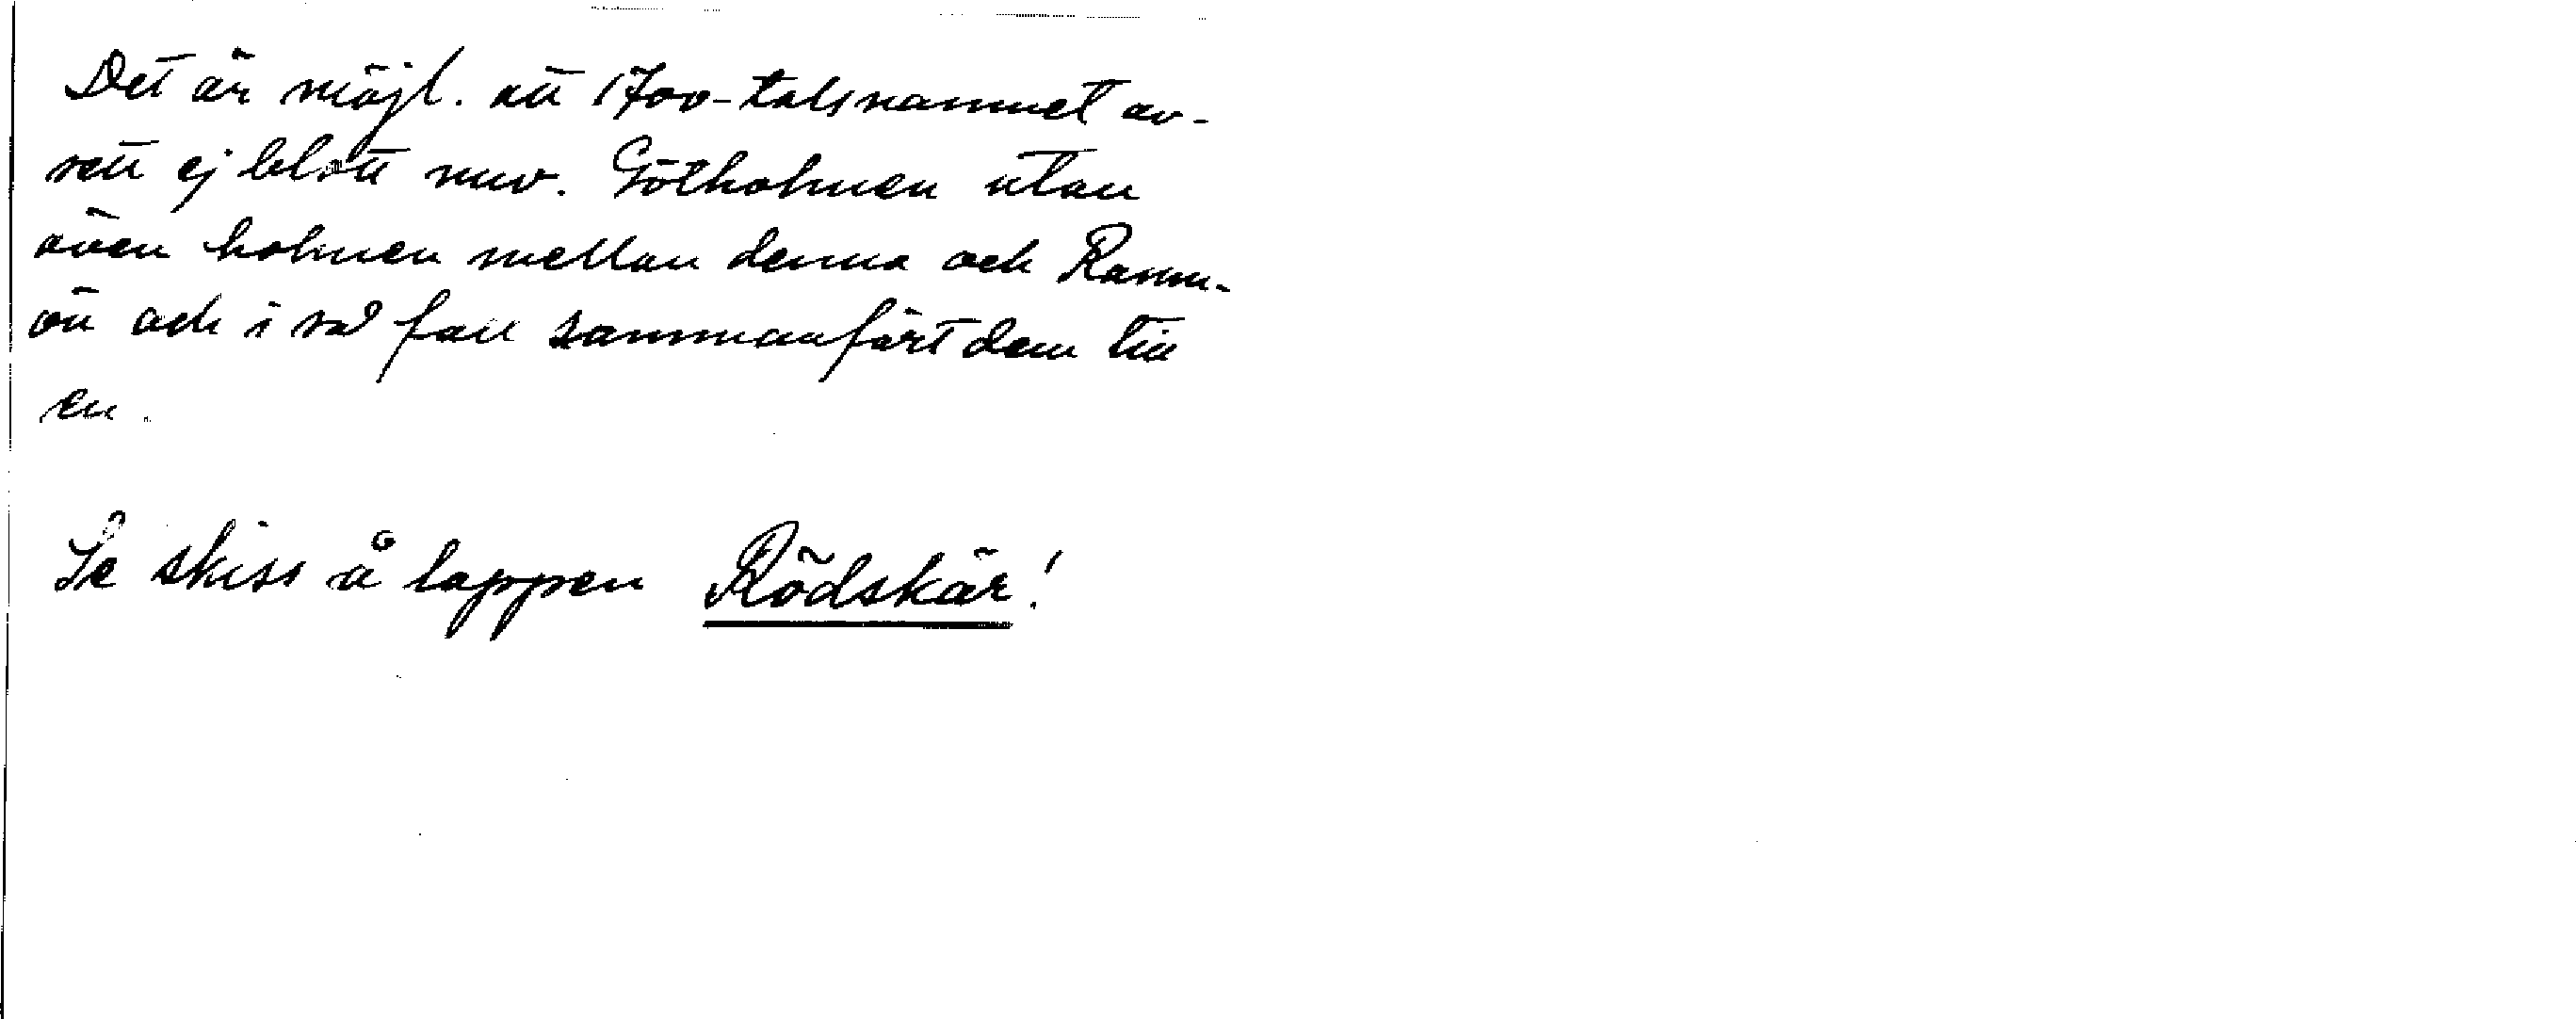 Det är möjl. att 1700-talsnamnet av-
sett ej blott nuv. Götholmen utan
även holmen mellan denna och Ramm-
ön och i så fall sammanfört dem till
en.
Se skiss å lappen Rödskär!